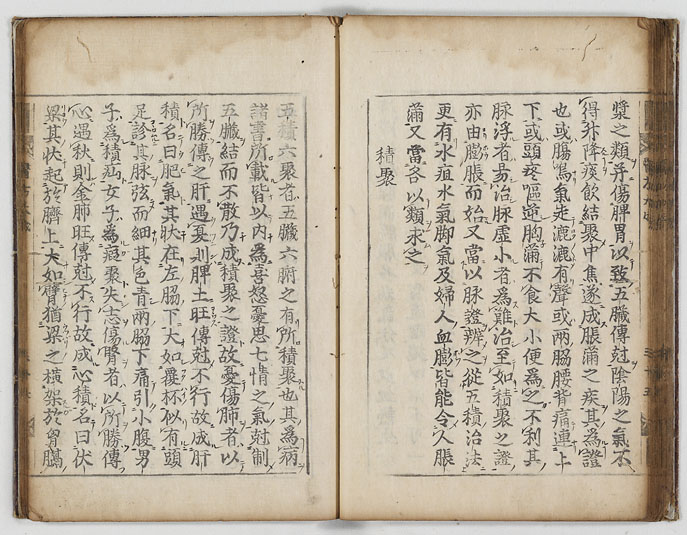 漿之類并傷脾胃以致五臟傳尅陰陽之氣不
得升降痰飲結聚中焦遂成脹滿之疾其爲證
也或腸鳴氣走漉漉有聲或兩脇腰背痛連上
下或頭疼嘔逆胸滿不食大小便爲之不利其
脉浮者易治脉虛小者爲難治至如積聚之證
亦由臌脹而始又當以脉證辨之從五積治法
更有水疽水氣脚氣及婦人血臌皆能令人脹
滿又當各以類求之
積聚
五積六聚者五臟六腑之有所積聚也其爲病
諸書所載皆以内爲喜怒憂思七情之氣尅制
五臟結而不散乃成積聚之證故憂傷肺者以
所勝傳之肝遇夏則脾土旺傳尅不行故成肝
積名曰肥氣其狀在左脇下大如覆杯似有頭
足診其脉弦而細其色青兩脇下痛引小腹男
子爲積疝女子爲瘕聚失志傷腎者以所勝傳
心遇秋則金肺旺傳尅不行故成心積名曰伏
梁其狀起於臍上大如臂猶梁之橫架於胷膈